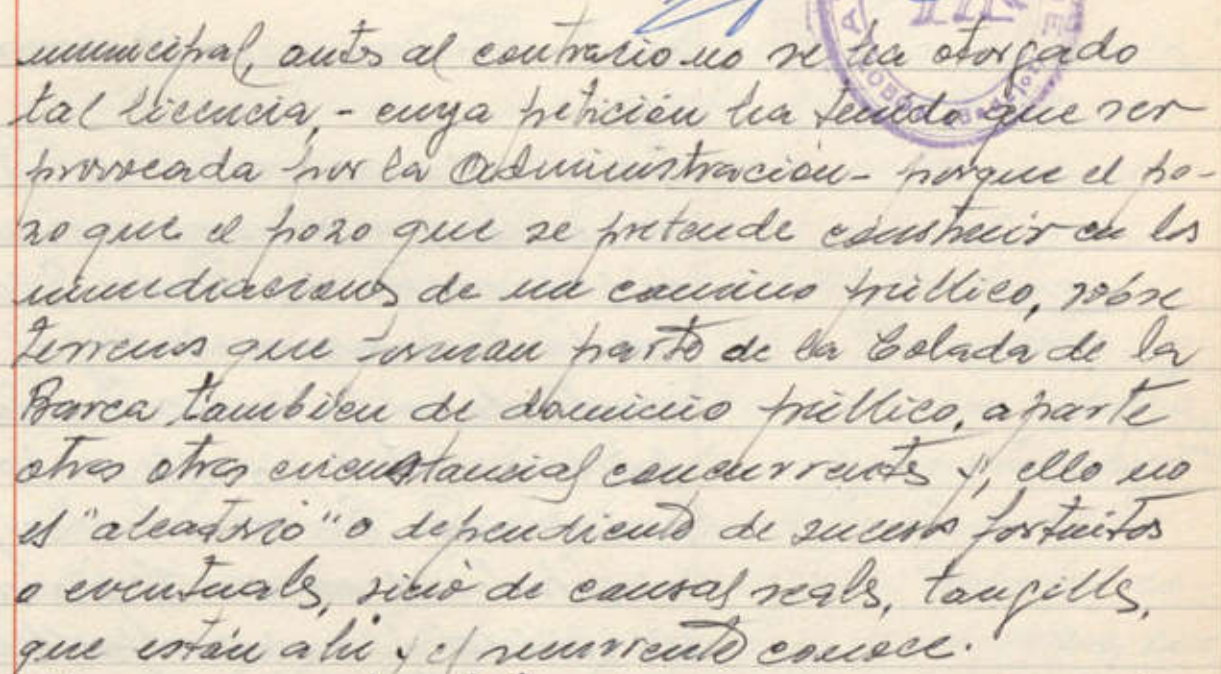 municipal, antes al contrario no se ha otorgado
tal licencia, - cuya petición ha tenido que ser
provocada por la Administración - porque el po-
zo que el pozo que se pretende construir en las
inmediaciones de un camino público, sobre
terrenos que forman parte de la Colada de la
Barca tambien de dominio público, aparte
otras otras circunstancias concurrentes y, ello no
es "aleatorio" o dependiente de sucesos fortuitos
o eventuales, sinó de causas reales, tangibles,
que están ahi y el recurrente conoce.